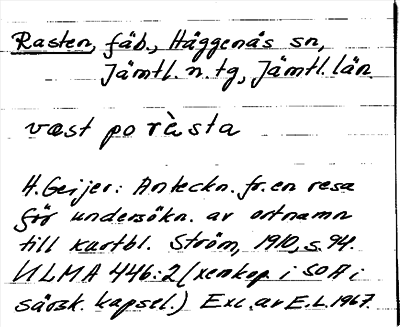 Rasten, fäb., Häggenås sn,
Jämtl. n. tg, Jämtl. län.
væst po ràsta
H. Geijer: Anteckn. fr. en resa
för undersökn. av ortnamn
till kartbl. Ström, 1910, s. 94.
ULMA 446:2 (xerokop. i SOA i
särsk. kapsel.) Exc. av E.L. 1967.